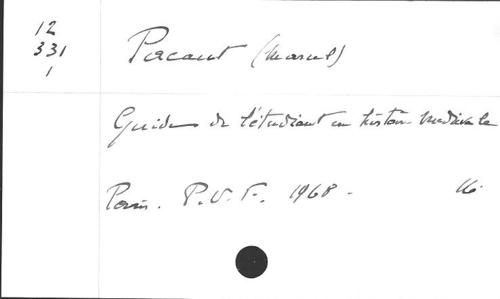 12
331
1
Pacaut (Marcel)
Guide de l'étudiant en histoire médiévale
Paris. P.U.F. 1968.